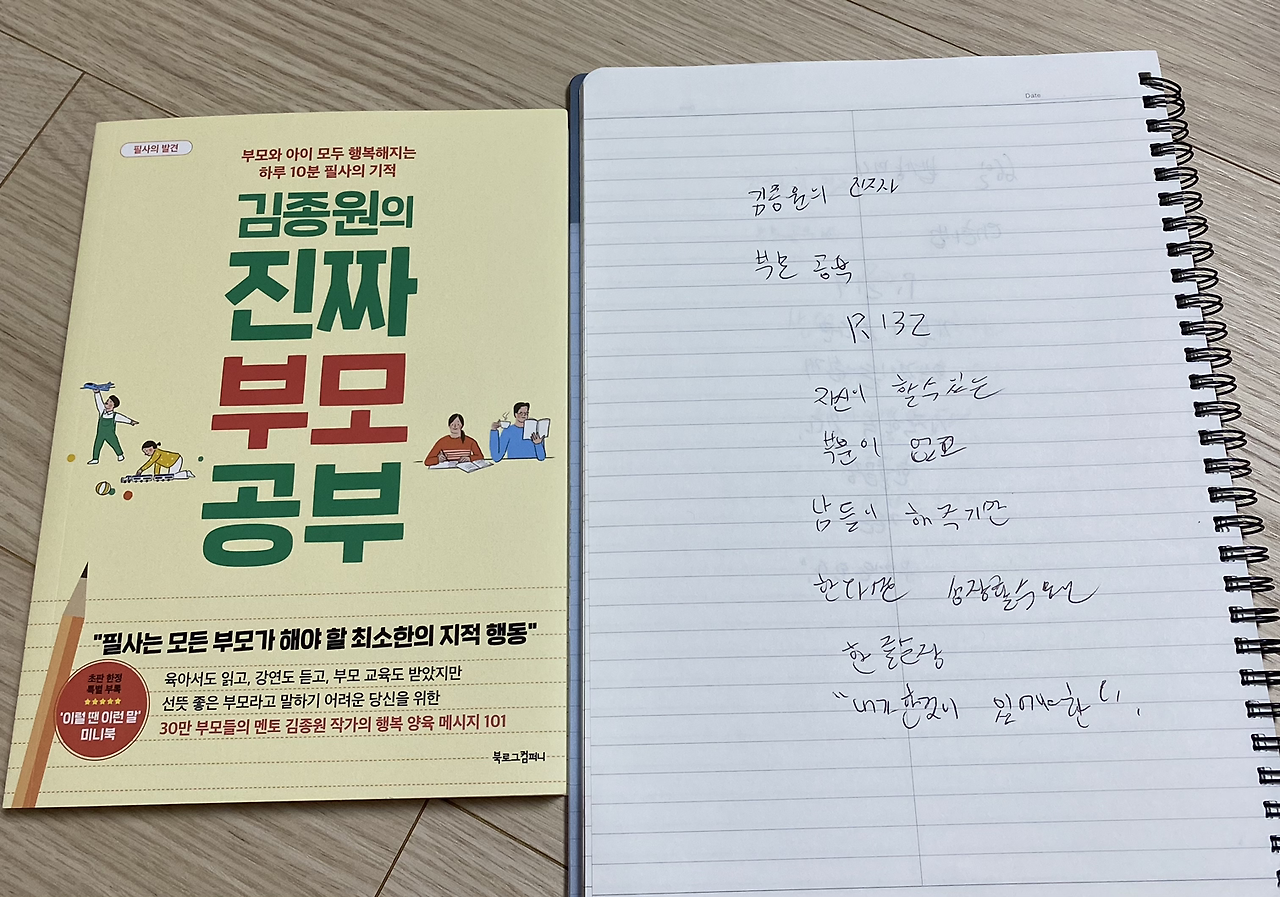 필사의 발견
부모와 아이 모두 행복해지는
하루 10분 필사의 기적
김종원의
진짜
부모
공부
"필사는 모든 부모가 해야 할 최소한의 지적 행동"
초판 한정
특별 부록
★★★★★
'이럴 땐 이런 말'
미니북
육아서도 읽고, 강연도 듣고, 부모 교육도 받았지만
선뜻 좋은 부모라고 말하기 어려운 당신을 위한
30만 부모들의 멘토 김종원 작가의 행복 양육 메시지 101
북로그컴퍼니
Date
김종원의 진짜
부모 공부
P. 132
자신이 할수있는
부분이 없고
남들이 해주기만
한다면 성장할수
한
"내가 한것이